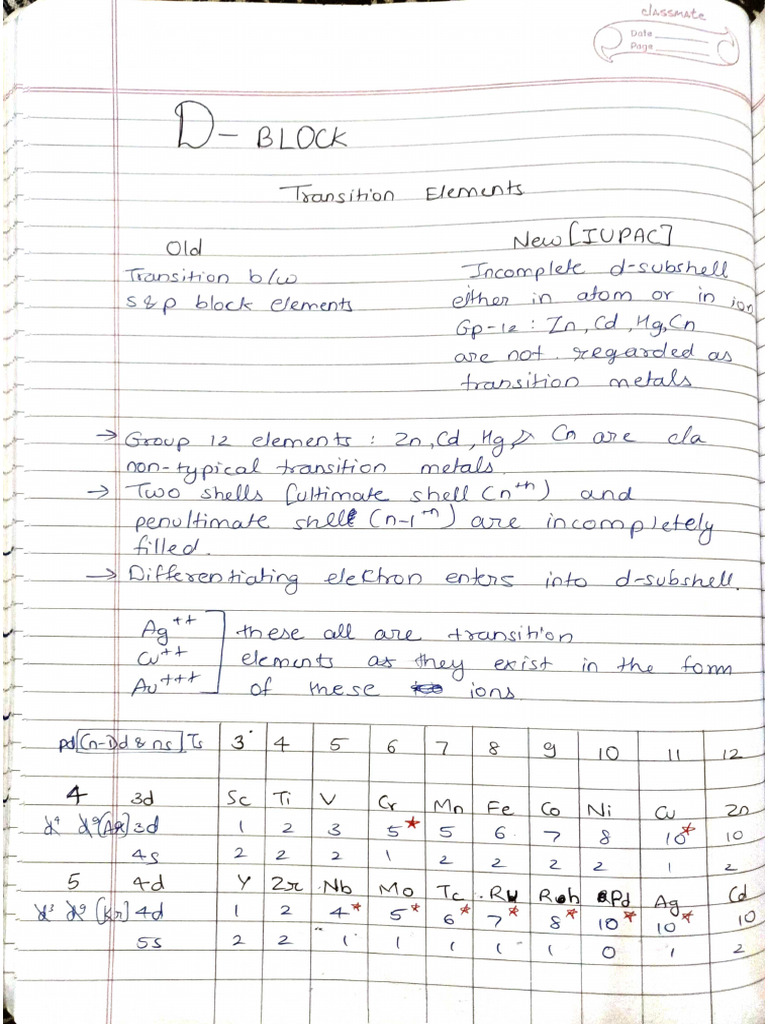 classmate
Date
Page
D-BLOCK
Transition Elements
Old
Transition b/w
s & p block elements
New [IUPAC]
Incomplete d-subshell
either in atom or in ion
Gp-12 : Zn, Cd, Hg, Cn
are not regarded as
transition metals
→ Group 12 elements : Zn, Cd, Hg, Cn are cla
non-typical transition metals.
→ Two shells [ultimate shell (nth) and
penultimate shell (n-1th) are incompletely
filled.
→ Differentiating electron enters into d-subshell.
Ag++ these all are transition
Cu++ elements as they exist in the form
Au+++ of these ions
pd [(n-1)d & ns] Ts 3 4 5 6 7 8 9 10 11 12
4 3d Sc Ti V Cr Mn Fe Co Ni Cu Zn
[Ar] 3d 1 2 3 5* 5 6 7 8 10* 10
4s 2 2 2 1 2 2 2 2 1 2
5 4d Y Zr Nb Mo Tc Ru Rh Pd Ag Cd
[Kr] 4d 1 2 4* 5* 6* 7* 8* 10* 10* 10
5s 2 2 1 1 1 1 1 0 1 2